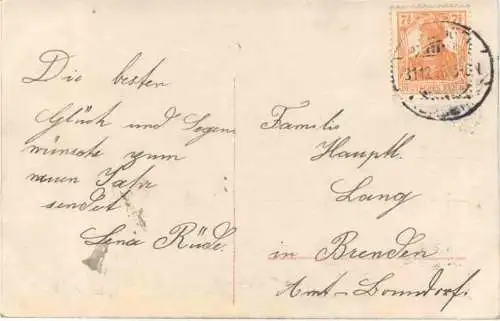 Die besten
Glück und Segens
wünsche zum
neuen Jahr
sendet
Lina Rüde.
7½ 7½
31.12.
Familie
Hauptl.
Lang
in Brenden
Amt-Bonndorf.